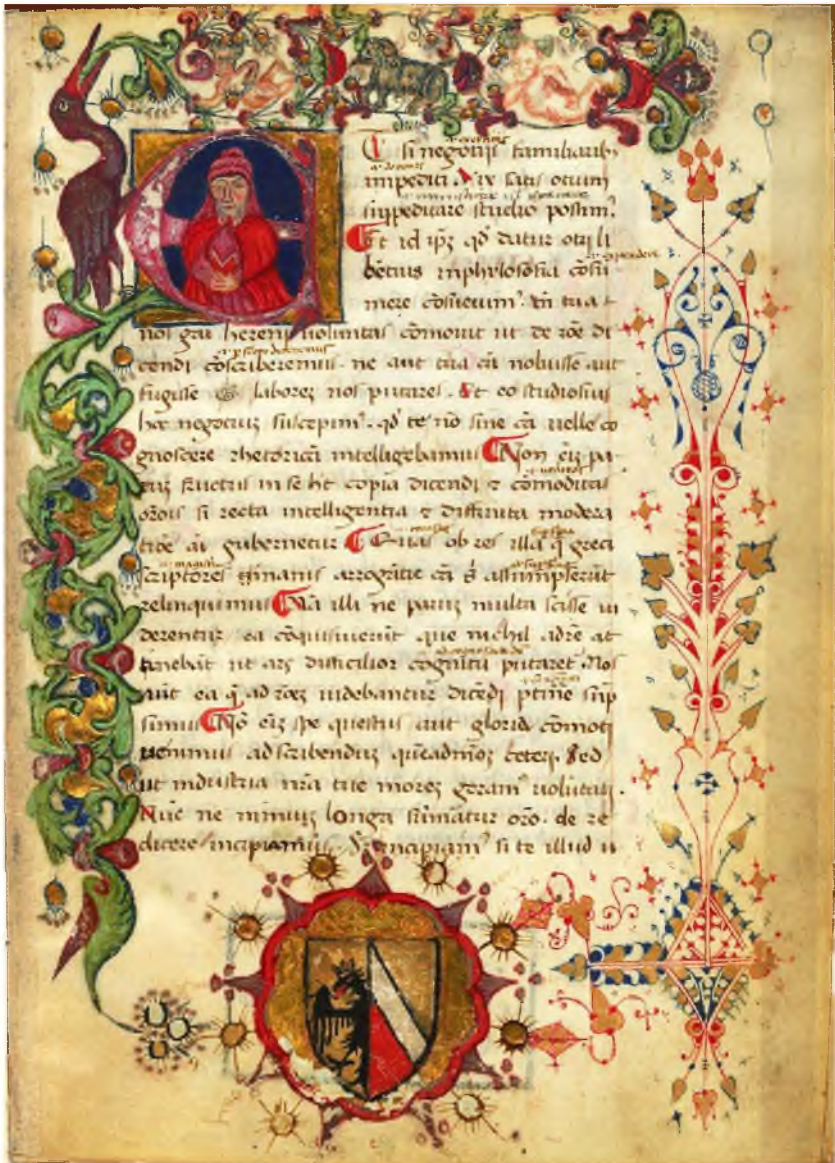 Et si negotijs familiarib⁹
impediti vix satis otium
suppeditare studio possim⁹
Et id ipꝫ qđ datur otij li
bētius in philosofia cōsu
mere cōsueuim⁹. tn̄ tua t
nos gai herenij voluntas cōmouit ut de rōe di
cendi cōscriberemus. ne aut tua cā noluisse aut
fugisse laborez nos putares. Et eo studiosius
hoc negociuz suscepim⁹. qđ te nō sine cā uelle co
gnoscere rhetoricā intelligebamus Non eiz pa
ruz fructus in se h̄t copia dicendi ⁊ cōmoditas
orōis si recta intelligentia ⁊ diffinita modera
tiōe ai gubernetur Quas ob res illa q̄ greci
scriptores arrogātie cā assumpserūt
relinquimus Nā illi ne paruz multa scisse ui
derentur ea cōquisiuerūt que nichil adrē at
tinebāt ut ars difficilior cognitu putaret Nos
aut ea q̄ ad rōez uidebantur dicēdi ptinē sūp
simus Nō eiz spe questus aut gloria cōmoti
uenimus ad scribenduz queadmōz ceterj. Sed
ut industria nr̄a tue morez geram⁹ uolūtati.
Nūc ne nimiuz longa sūmatur orō. de re
dicere incipiamus incipiam⁹ si te illud u